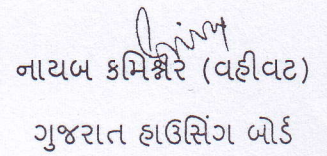 નાયબ કમિશ્નર (વહીવટ)
ગુજરાત હાઉસિંગ બોર્ડ